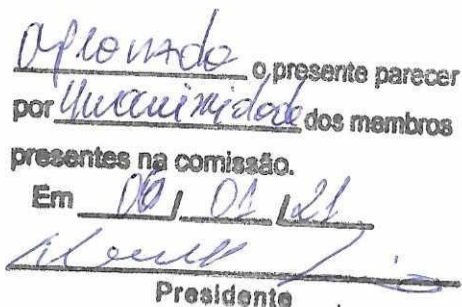 Aprovado o presente parecer
por Unanimidade dos membros
presentes na comissão.
Em 06 / 01 / 21
Presidente